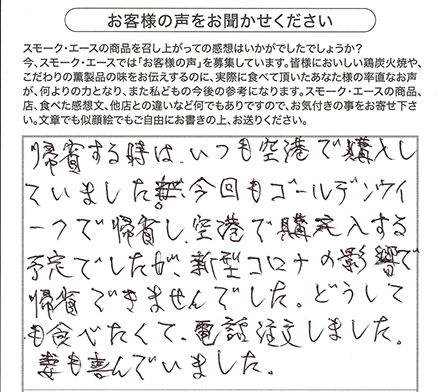 お客様の声をお聞かせください
スモーク・エースの商品を召し上がっての感想はいかがでしたでしょうか?
今、スモーク・エースでは「お客様の声」を募集しています。皆様においしい鶏炭火焼や、
こだわりの薫製品の味をお伝えするのに、実際に食べて頂いたあなた様の率直なお声
が、何よりの力となり、また私どもの今後の参考になります。スモーク・エースの商品、
店、食べた感想文、他店との違いなど何でもありですので、お気付きの事をお寄せ下さ
い。文章でも似顔絵でもご自由にお書きの上、お送りください。
帰省する時は、いつも空港で購入し
ていました。今回もゴールデンウイ
ークで帰省し、空港で購入する
予定でしたが、新型コロナの影響で
帰省できませんでした。どうして
も食べたくて、電話注文しました。
妻も喜んでいました。